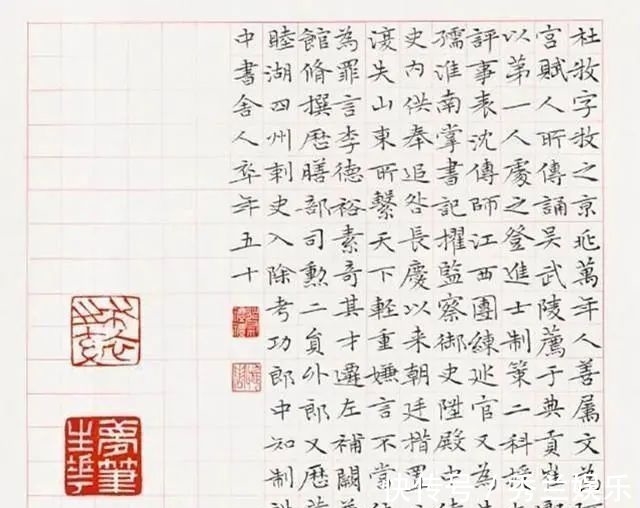 杜牧字牧之京兆萬年人善属文為
宮賦人所傳誦吳武陵薦于典貢崔
以第一人處之登進士制策二科授
評事表沈傳師江西團練巡官又為
孺淮南掌書記擢監察御史陞殿中侍
史内供奉追咎長慶以来朝廷措置
濅失山東所繫天下輕重嫌言不當
為罪言李德裕素奇其才遷左補闕
館脩撰歷膳部司勳二員外郎又歷
睦湖四州刺史入除考功郎中知制
中書舍人卒年五十
夢筆生花
快传号 / 秀兰娱乐